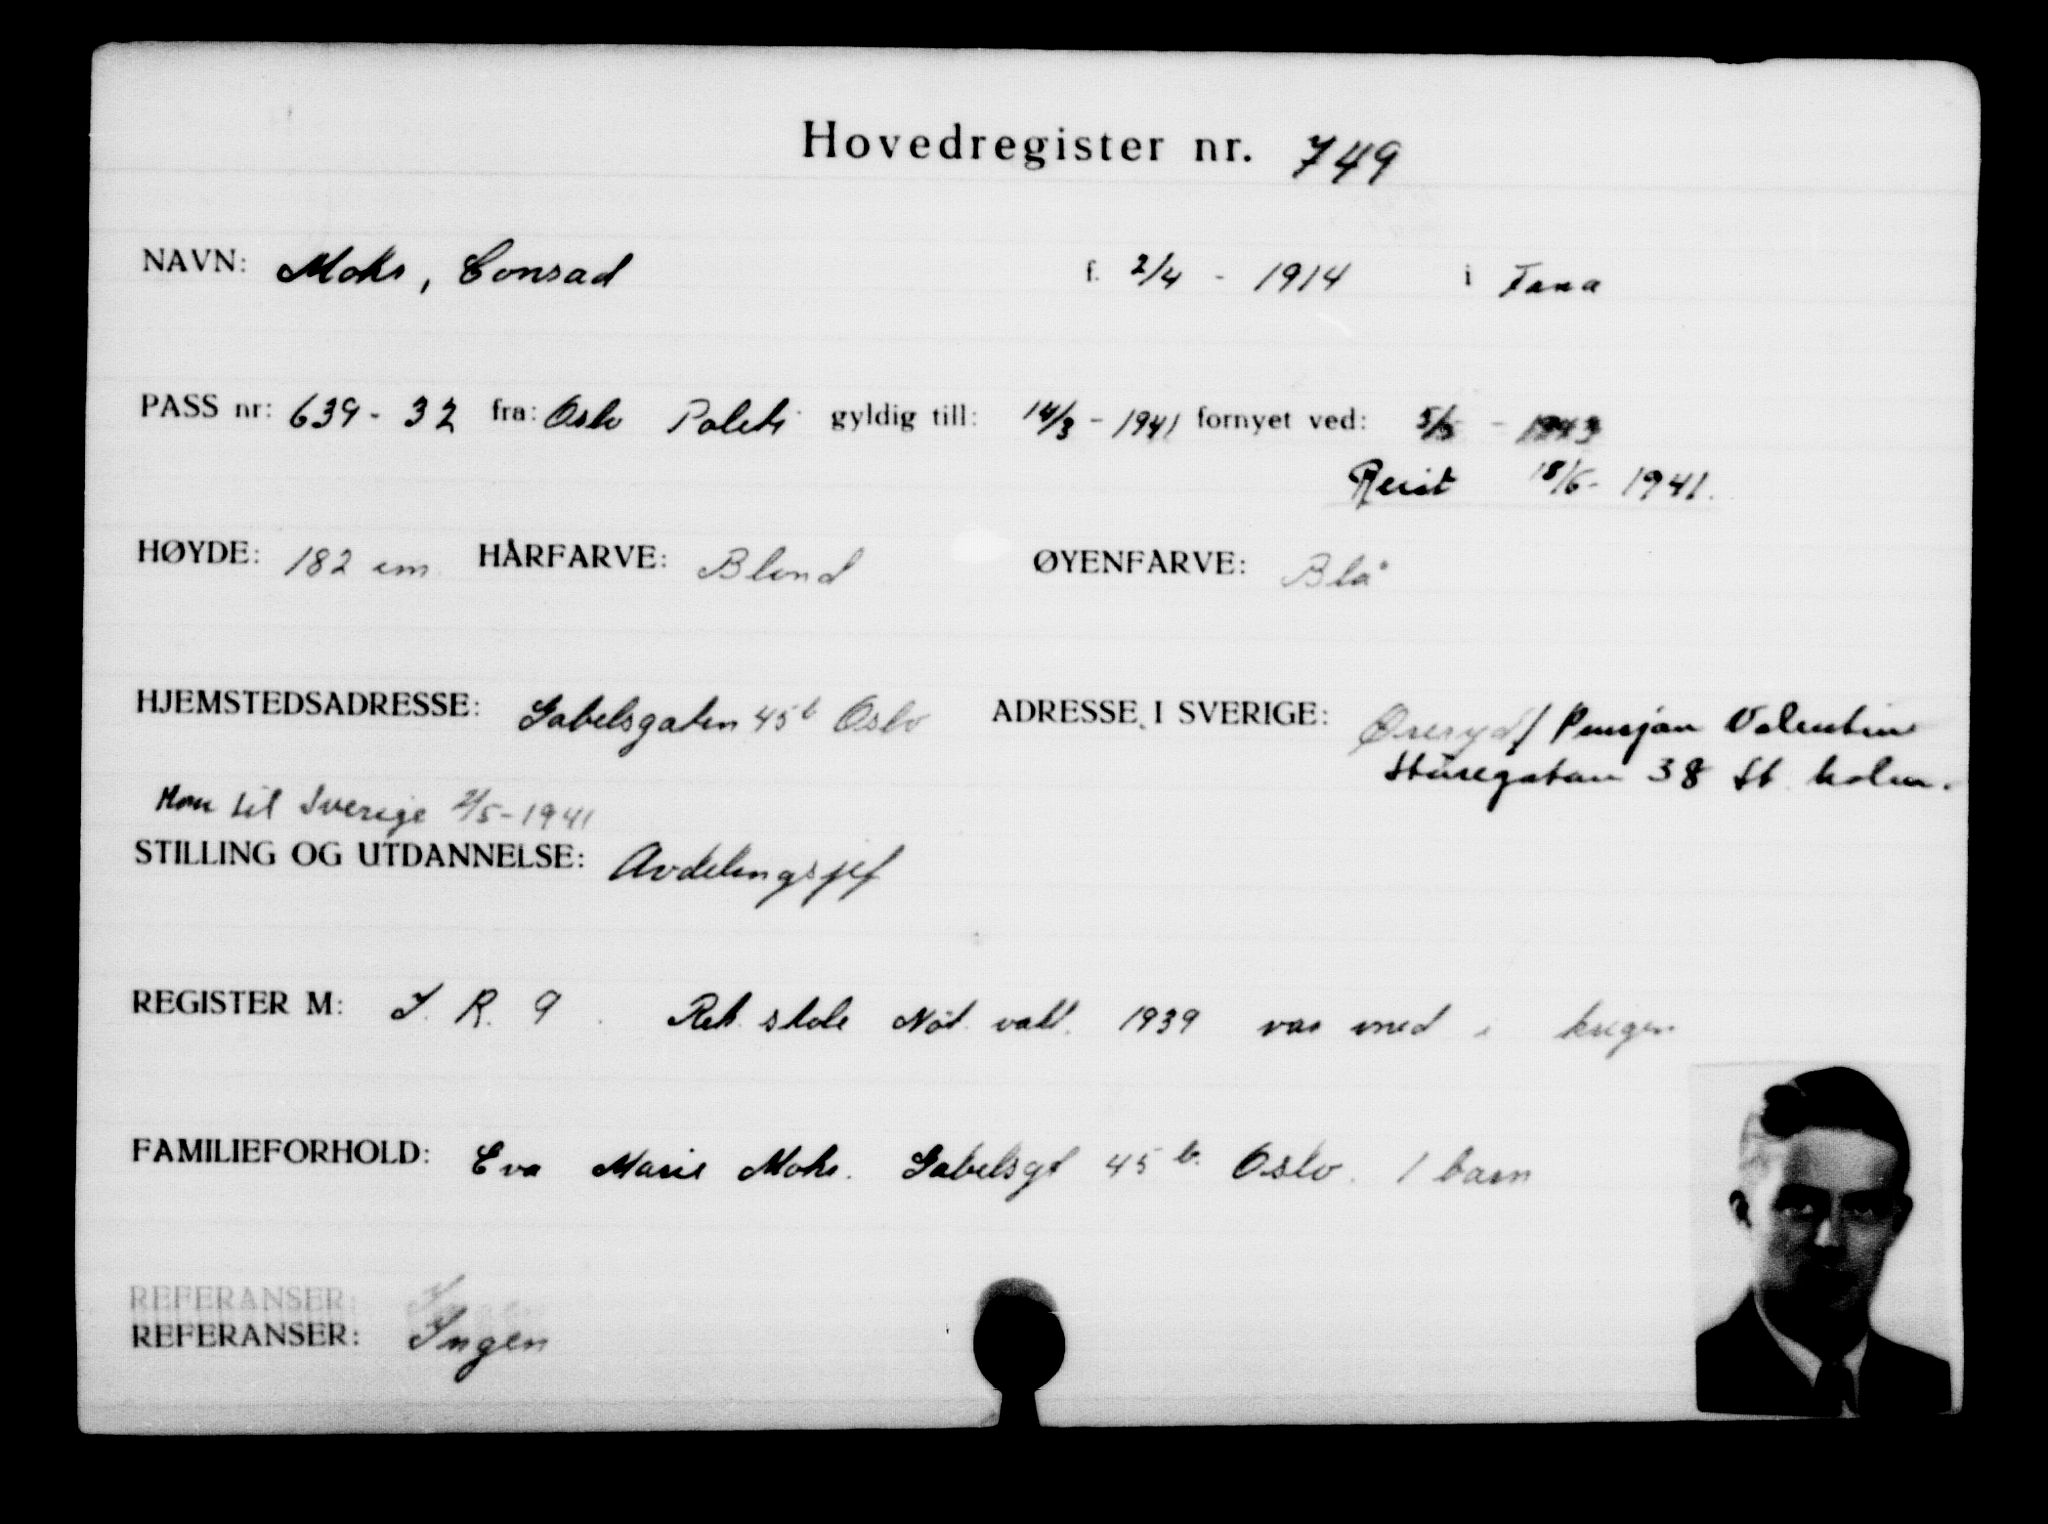 Hovedregister nr. 749
NAVN: Mohr, Conrad f. 2/4 - 1914 i Fana
PASS nr: 639 - 32 fra: Oslo Politi gyldig till: 14/3 - 1941 fornyet ved: 5/5 - 1943
Reist 18/6 - 1941.
HØYDE: 182 cm HÅRFARVE: Blond ØYENFARVE: Blå
HJEMSTEDSADRESSE: Gabelsgaten 45 b Oslo ADRESSE I SVERIGE: Øreryd / Pensjon Valentin
Sturegatan 38 St.holm.
Kom til Sverige 2/5 - 1941
STILLING OG UTDANNELSE: Avdelingsjef
REGISTER M: I. R. 9. Rek. skole Nöt. vakt. 1939 var med i krigen
FAMILIEFORHOLD: Eva Marie Mohr. Gabelsgt 45 b. Oslo. 1 barn
REFERANSER:
REFERANSER: Ingen